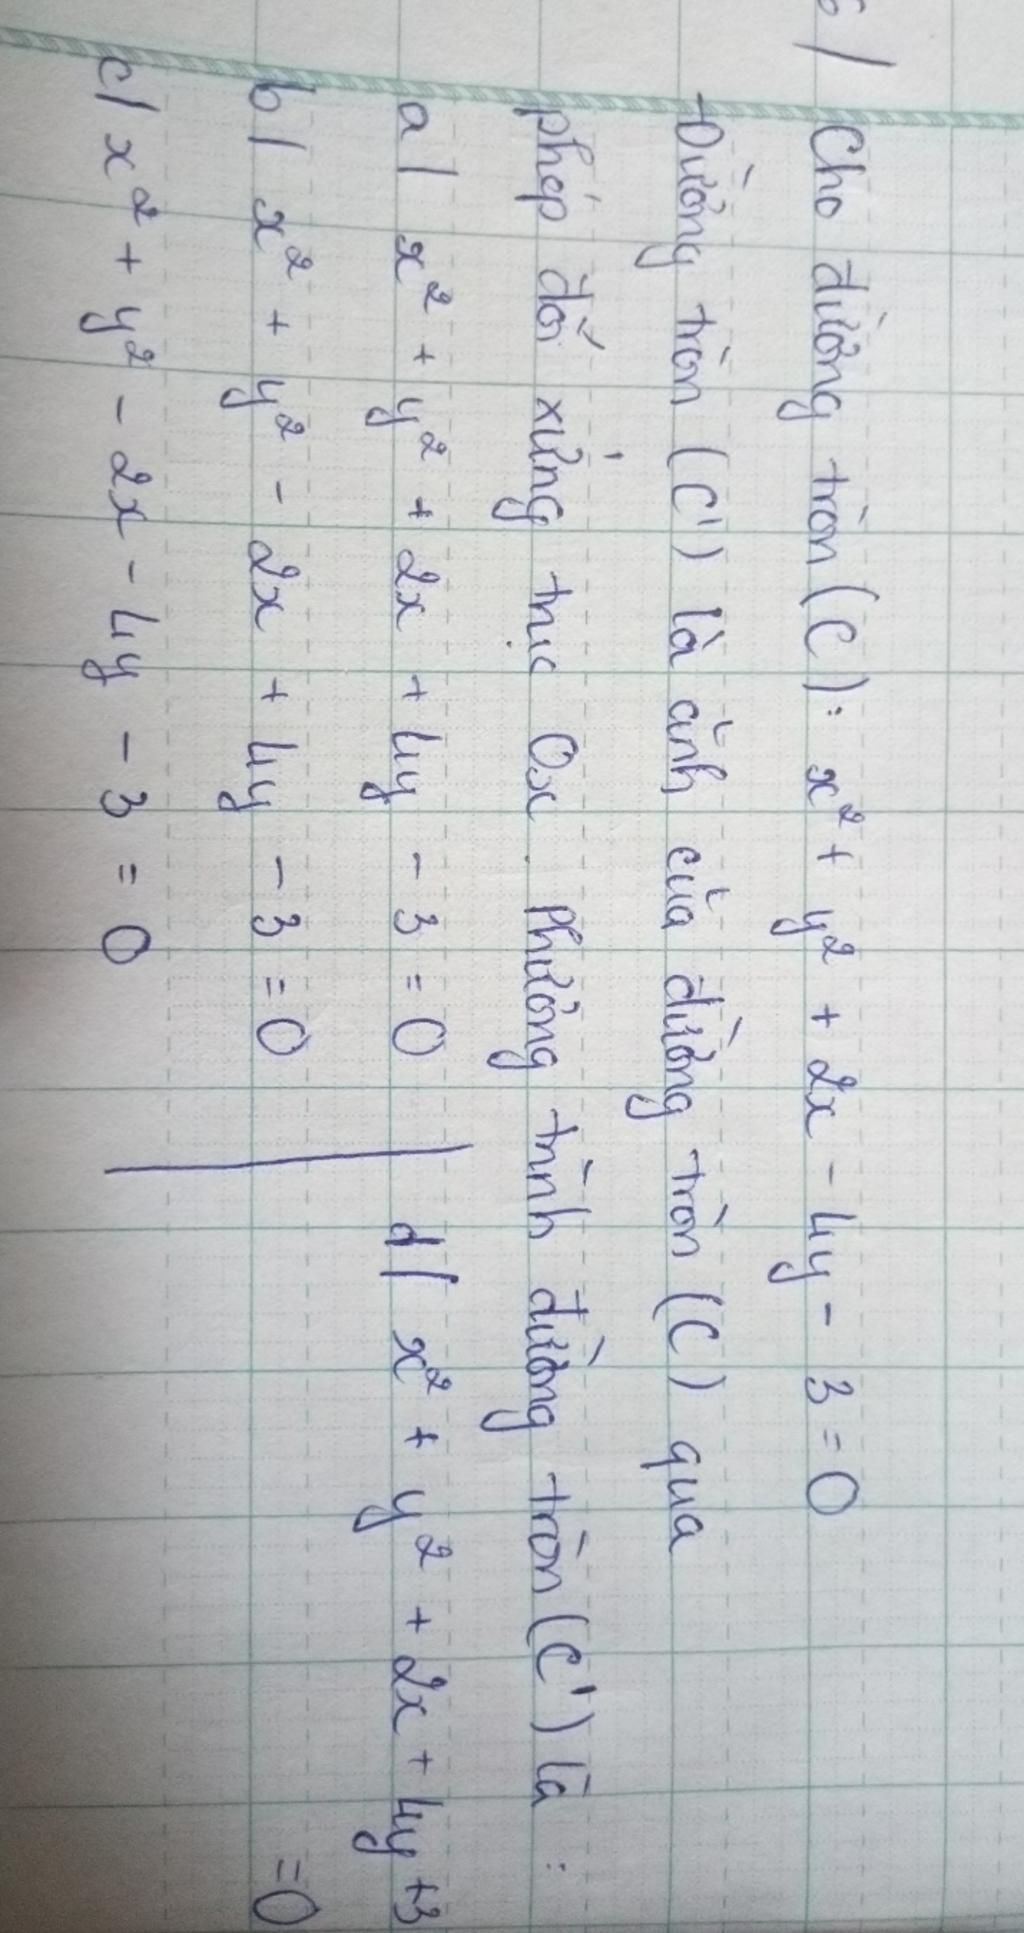 6/ Cho đường tròn (C): x² + y² + 2x - 4y - 3 = 0
Đường tròn (C') là ảnh của đường tròn (C) qua
phép đối xứng trục Ox. Phương trình đường tròn (C') là :
a/ x² + y² + 2x + 4y - 3 = 0 d/ x² + y² + 2x + 4y + 3
b/ x² + y² - 2x + 4y - 3 = 0 = 0
c/ x² + y² - 2x - 4y - 3 = 0